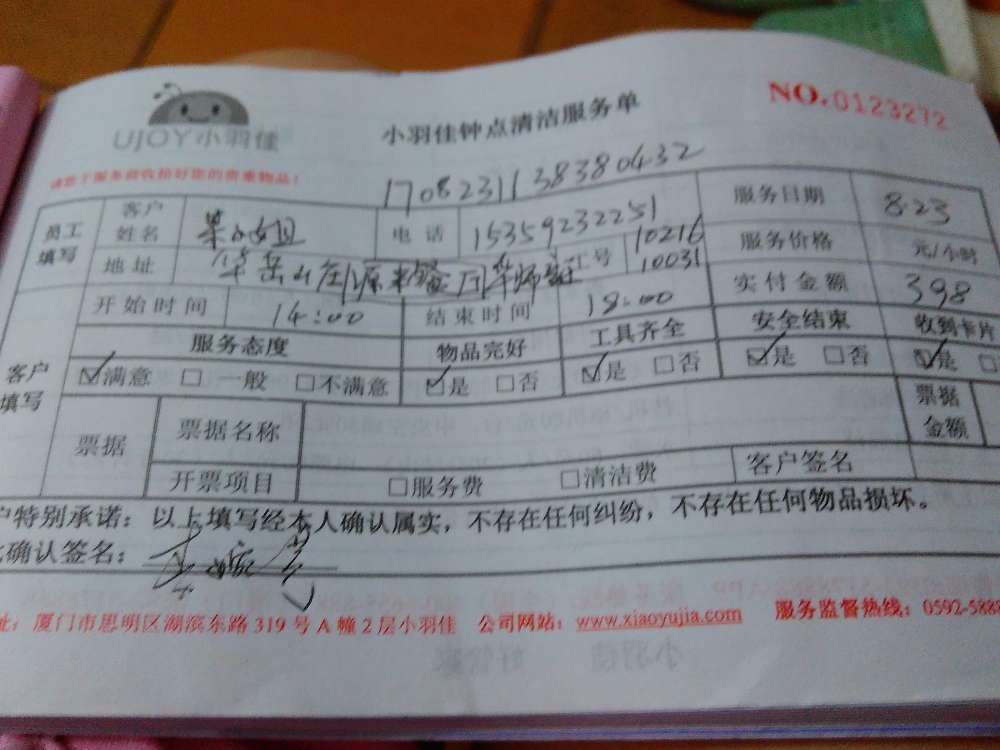 UJOY小羽佳
小羽佳钟点清洁服务单
NO.0123272
1708231138380432
员工填写
客户姓名 小姐 电话 15359232251 服务日期 8.23
地址 工号 10216 10031 服务价格 元/小时
开始时间 14:00 结束时间 18:00 实付金额 398
客户填写
服务态度 物品完好 工具齐全 安全结束 收到卡片
☑满意 □一般 □不满意 ☑是 □否 ☑是 □否 ☑是 □否 ☑是 □
票据 票据名称 票据金额
开票项目 □服务费 □清洁费 客户签名
户特别承诺：以上填写经本人确认属实，不存在任何纠纷，不存在任何物品损坏。
确认签名：
址：厦门市思明区湖滨东路 319 号 A 幢 2 层小羽佳 公司网站：www.xiaoyujia.com 服务监督热线：0592-588